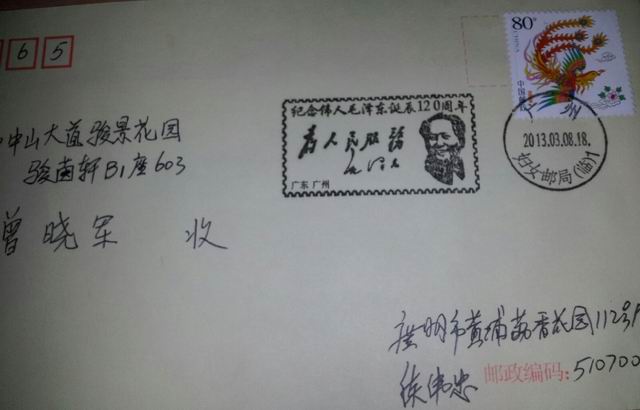 65
80分
中国邮政
CHINA
纪念伟人毛泽东诞辰120周年
为人民服务
毛泽东
广东 广州
广州
2013.03.08.18.
妇女邮局(临)1
中山大道骏景花园
骏南轩B1座603
曾晓军 收
广州市黄埔荔香花园112号
邮政编码:510700